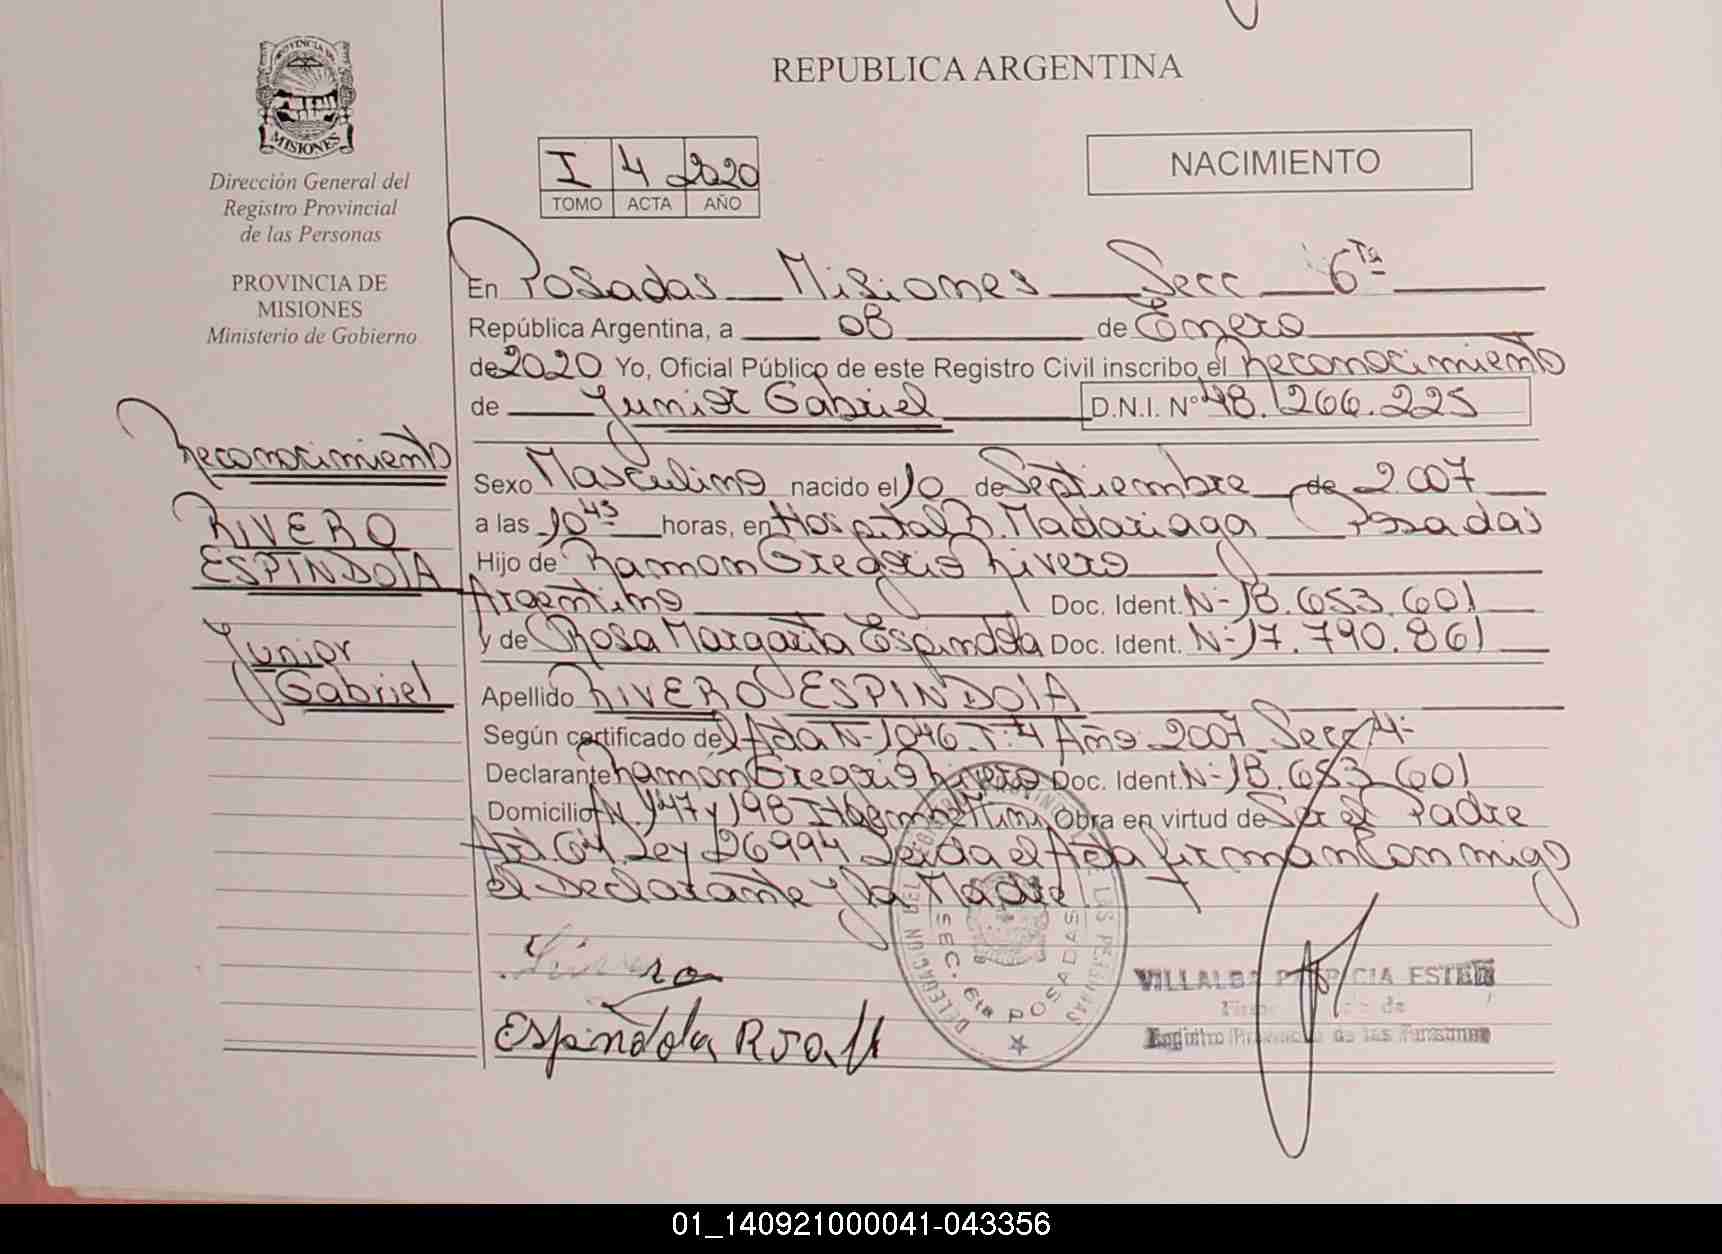 PROVINCIA DE
MISIONES
Dirección General del
Registro Provincial
de las Personas
PROVINCIA DE
MISIONES
Ministerio de Gobierno
Reconocimiento
RIVERO
ESPINDOLA
Junior
Gabriel
REPUBLICA ARGENTINA
I 4 2020
TOMO ACTA AÑO
NACIMIENTO
En Posadas Misiones Secc 6ta
República Argentina, a 08 de Enero
de 2020 Yo, Oficial Público de este Registro Civil inscribo el Reconocimiento
de Junior Gabriel D.N.I. N° 48.266.225
Sexo Masculino nacido el 10 de Septiembre de 2007
a las 10 45 horas, en Hospital R. Madariaga Posadas
Hijo de Ramon Gregorio Rivero
Argentino Doc. Ident. N- 18.653.601
y de Rosa Margarita Espindola Doc. Ident. N- 17.790.861
Apellido RIVERO ESPINDOLA
Según certificado del Acta N- 1046 T: 4 Año 2007 Secc 4-
Declarante Ramon Gregorio Rivero Doc. Ident. N- 18.653.601
Domicilio Av. 147 y 198 Itaembe Mini Obra en virtud de Ser el Padre
Art 64 Ley 26994 Leida el Acta firman Conmigo
el Declarante y la Madre
Rivero
Espindola Rosa M
DELEGACION DEL REGISTRO PROVINCIAL DE LAS PERSONAS
SEC. 6ta POSADAS
VILLALBA PATRICIA ESTER
Registro Provincial de las Personas
01_140921000041-043356